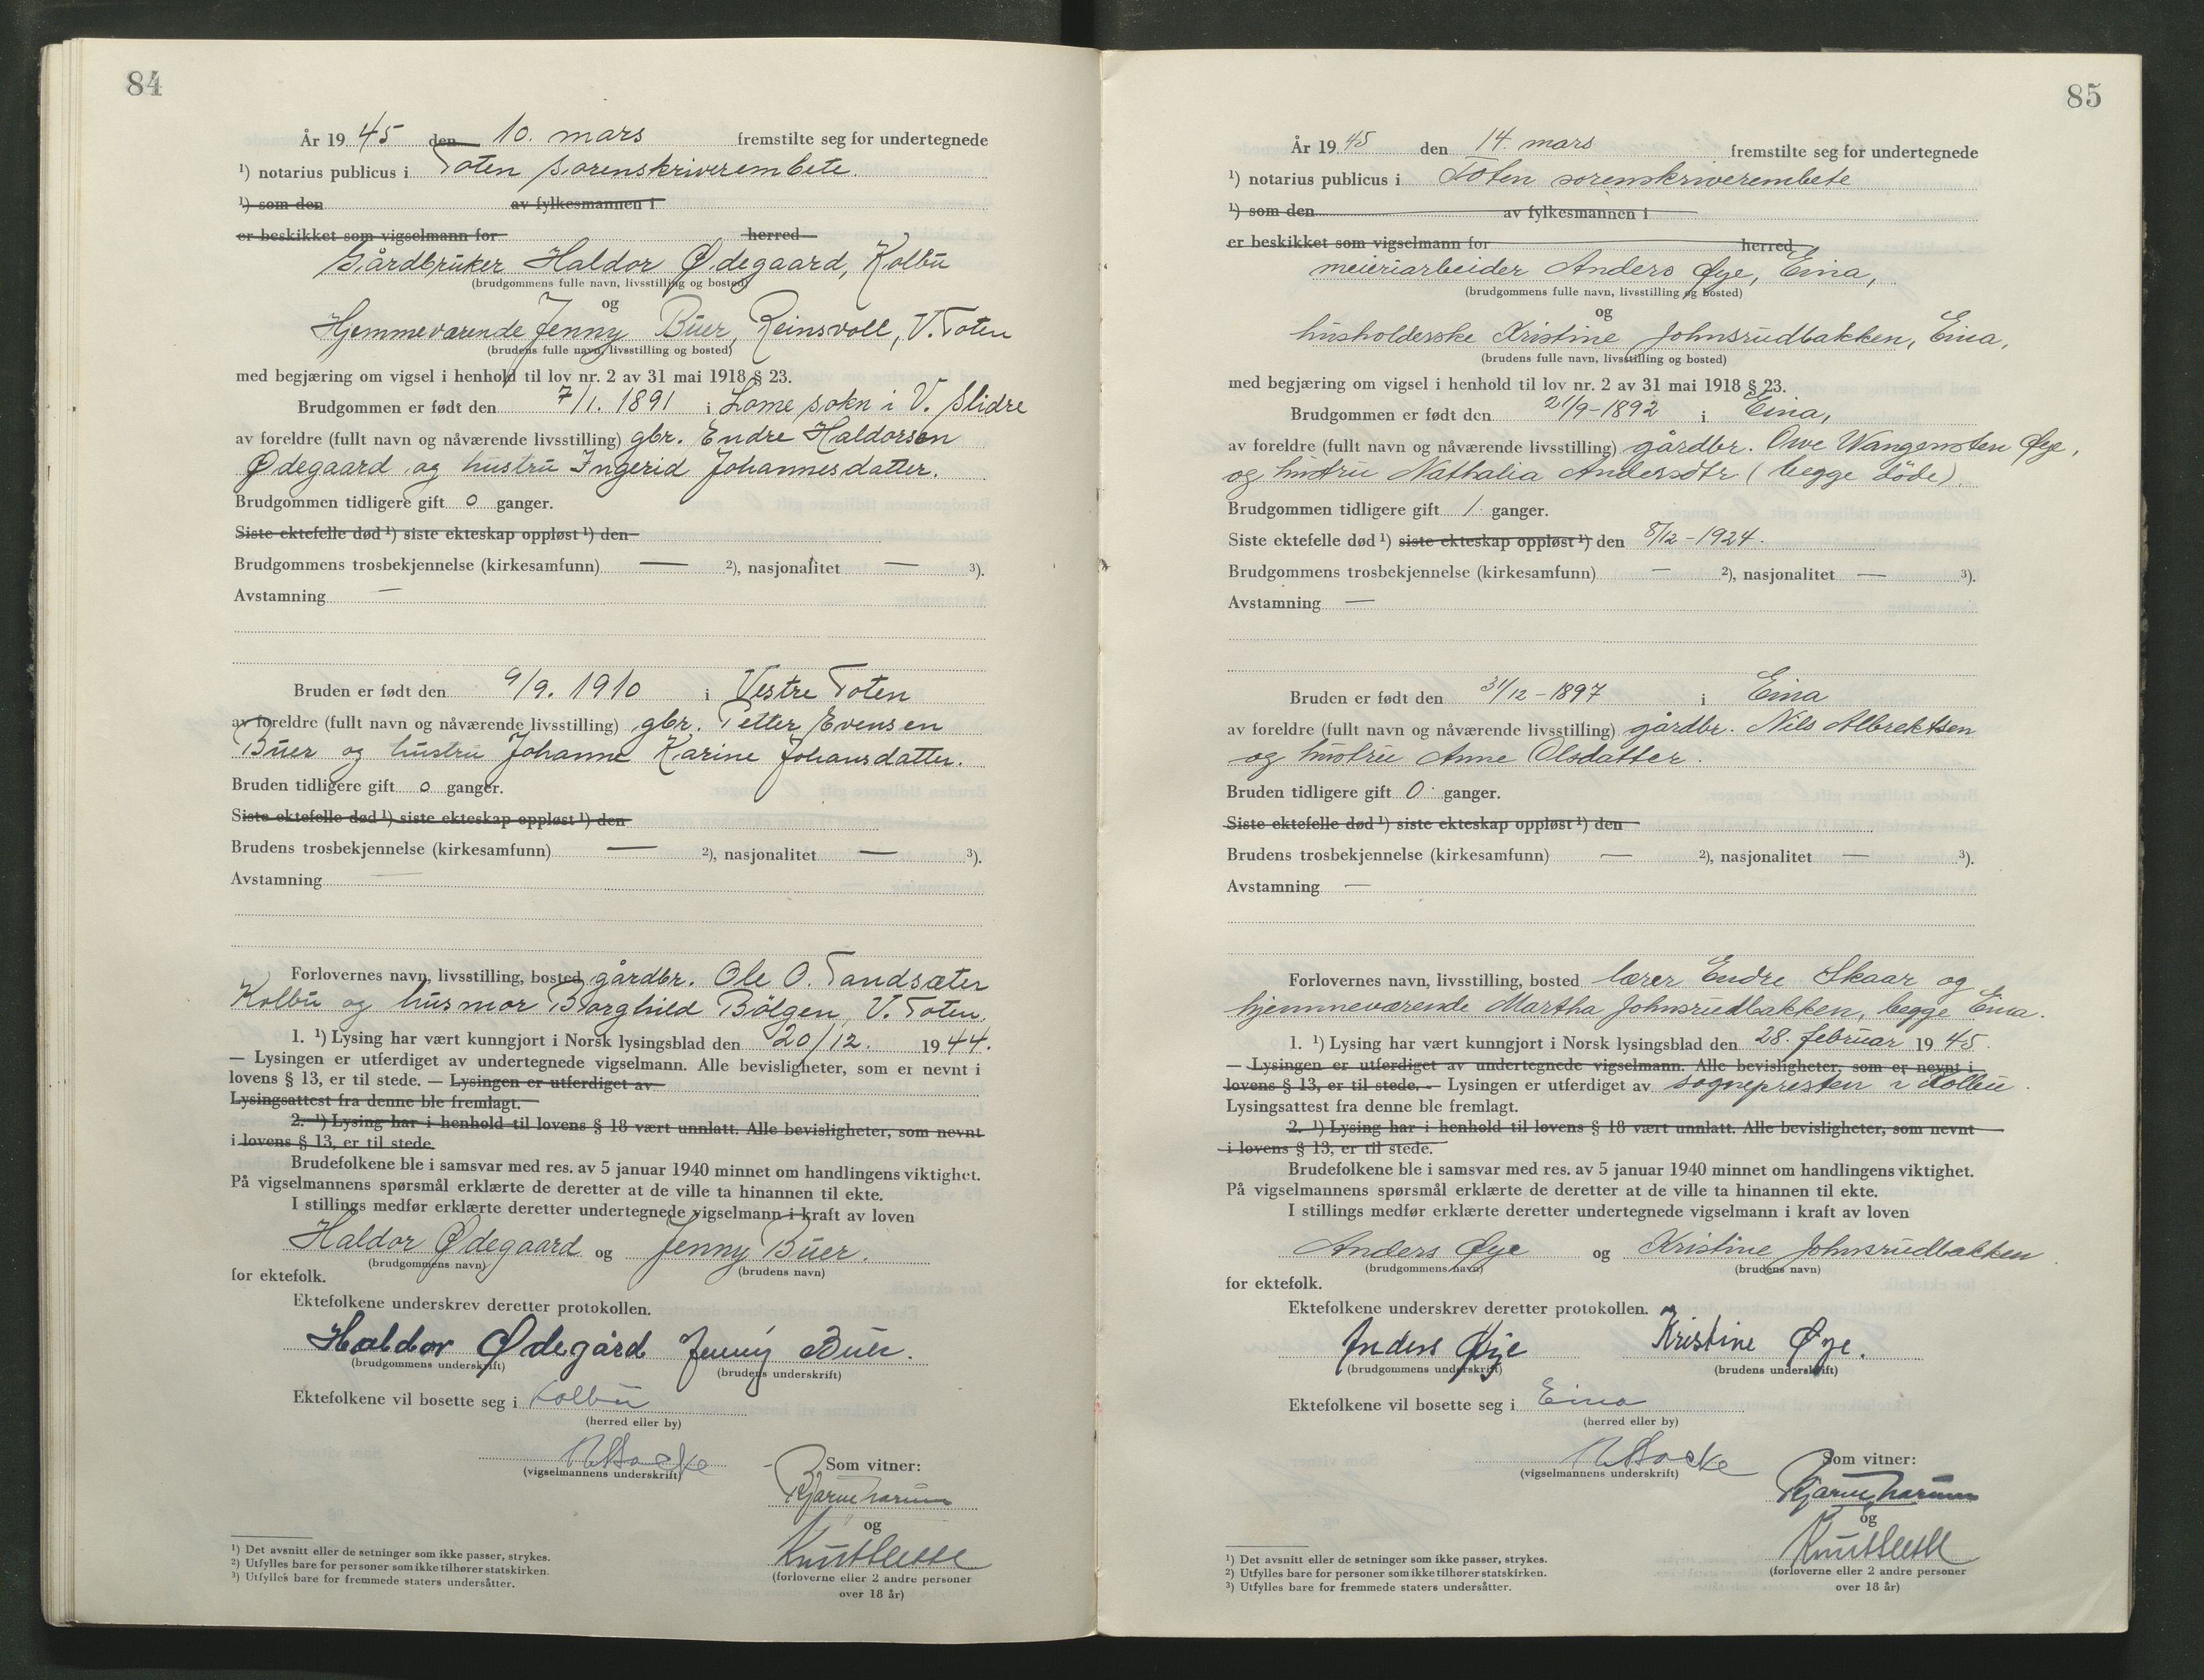 84
År 1945 den 10. mars fremstilte seg for undertegnede
¹) notarius publicus i Toten sorenskriverembete.
¹) som den av fylkesmannen i
er beskikket som vigselmann for herred
Gårdbruker Haldor Ødegaard, Kolbu
(brudgommens fulle navn, livsstilling og bosted)
og
Hjemmeværende Jenny Buer, Reinsvoll, V. Toten
(brudens fulle navn, livsstilling og bosted)
med begjæring om vigsel i henhold til lov nr. 2 av 31 mai 1918 § 23.
Brudgommen er født den 7/1. 1891 i Lome sokn i V. Slidre
av foreldre (fullt navn og nåværende livsstilling) gbr. Endre Haldorsen
Ødegaard og hustru Ingerid Johannesdatter.
Brudgommen tidligere gift 0 ganger.
Siste ektefelle død ¹) siste ekteskap oppløst ¹) den
Brudgommens trosbekjennelse (kirkesamfunn) — ²), nasjonalitet — ³).
Avstamning —
Bruden er født den 9/9. 1910 i Vestre Toten
av foreldre (fullt navn og nåværende livsstilling) gbr. Petter Evensen
Buer og hustru Johanne Karine Johansdatter.
Bruden tidligere gift 0 ganger.
Siste ektefelle død ¹) siste ekteskap oppløst ¹) den
Brudens trosbekjennelse (kirkesamfunn) — ²), nasjonalitet — ³).
Avstamning —
Forlovernes navn, livsstilling, bosted gårdbr. Ole O. Tandsæter
Kolbu og husmor Borghild Bölgen, V. Toten.
1. ¹) Lysing har vært kunngjort i Norsk lysingsblad den 20/12. 1944.
— Lysingen er utferdiget av undertegnede vigselmann. Alle bevisligheter, som er nevnt i
lovens § 13, er til stede. — Lysingen er utferdiget av
Lysingsattest fra denne ble fremlagt.
2. ¹) Lysing har i henhold til lovens § 18 vært unnlatt. Alle bevisligheter, som nevnt
i lovens § 13, er til stede.
Brudefolkene ble i samsvar med res. av 5 januar 1940 minnet om handlingens viktighet.
På vigselmannens spørsmål erklærte de deretter at de ville ta hinannen til ekte.
I stillings medfør erklærte deretter undertegnede vigselmann i kraft av loven
Haldor Ødegaard og Jenny Buer.
(brudgommens navn) (brudens navn)
for ektefolk.
Ektefolkene underskrev deretter protokollen.
Haldor Ødegård Jenny Buer.
(brudgommens underskrift) (brudens underskrift)
Ektefolkene vil bosette seg i Kolbu
(herred eller by)
(vigselmannens underskrift)
Som vitner:
Bjarne
og
Knut
(forloverne eller 2 andre personer
over 18 år)
¹) Det avsnitt eller de setninger som ikke passer, strykes.
²) Utfylles bare for personer som ikke tilhører statskirken.
³) Utfylles bare for fremmede staters undersåtter.
85
År 1945 den 14. mars fremstilte seg for undertegnede
¹) notarius publicus i Toten sorenskriverembete
¹) som den av fylkesmannen i
er beskikket som vigselmann for herred
meieriarbeider Anders Øye, Eina,
(brudgommens fulle navn, livsstilling og bosted)
og
husholderske Kristine Johnsrudbakken, Eina,
(brudens fulle navn, livsstilling og bosted)
med begjæring om vigsel i henhold til lov nr. 2 av 31 mai 1918 § 23.
Brudgommen er født den 21/9-1892 i Eina,
av foreldre (fullt navn og nåværende livsstilling) gårdbr. Owe Wangensten Øye,
og hustru Nathalia Andersdtr (begge döde).
Brudgommen tidligere gift 1 ganger.
Siste ektefelle død ¹) siste ekteskap oppløst ¹) den 8/12-1924.
Brudgommens trosbekjennelse (kirkesamfunn) — ²), nasjonalitet — ³).
Avstamning —
Bruden er født den 31/12-1897 i Eina
av foreldre (fullt navn og nåværende livsstilling) gårdbr. Nils Albrektsen
og hustru Anne Olsdatter.
Bruden tidligere gift 0 ganger.
Siste ektefelle død ¹) siste ekteskap oppløst ¹) den
Brudens trosbekjennelse (kirkesamfunn) — ²), nasjonalitet — ³).
Avstamning —
Forlovernes navn, livsstilling, bosted lærer Endre Skaar og
hjemmeværende Martha Johnsrudbakken, begge Eina.
1. ¹) Lysing har vært kunngjort i Norsk lysingsblad den 28. februar 1945.
— Lysingen er utferdiget av undertegnede vigselmann. Alle bevisligheter, som er nevnt i
lovens § 13, er til stede. — Lysingen er utferdiget av sognepresten i Kolbu.
Lysingsattest fra denne ble fremlagt.
2. ¹) Lysing har i henhold til lovens § 18 vært unnlatt. Alle bevisligheter, som nevnt
i lovens § 13, er til stede.
Brudefolkene ble i samsvar med res. av 5 januar 1940 minnet om handlingens viktighet.
På vigselmannens spørsmål erklærte de deretter at de ville ta hinannen til ekte.
I stillings medfør erklærte deretter undertegnede vigselmann i kraft av loven
Anders Øye og Kristine Johnsrudbakken
(brudgommens navn) (brudens navn)
for ektefolk.
Ektefolkene underskrev deretter protokollen.
Anders Øye Kristine Øye.
(brudgommens underskrift) (brudens underskrift)
Ektefolkene vil bosette seg i Eina
(herred eller by)
(vigselmannens underskrift)
Som vitner:
Bjarne
og
Knut
(forloverne eller 2 andre personer
over 18 år)
¹) Det avsnitt eller de setninger som ikke passer, strykes.
²) Utfylles bare for personer som ikke tilhører statskirken.
³) Utfylles bare for fremmede staters undersåtter.